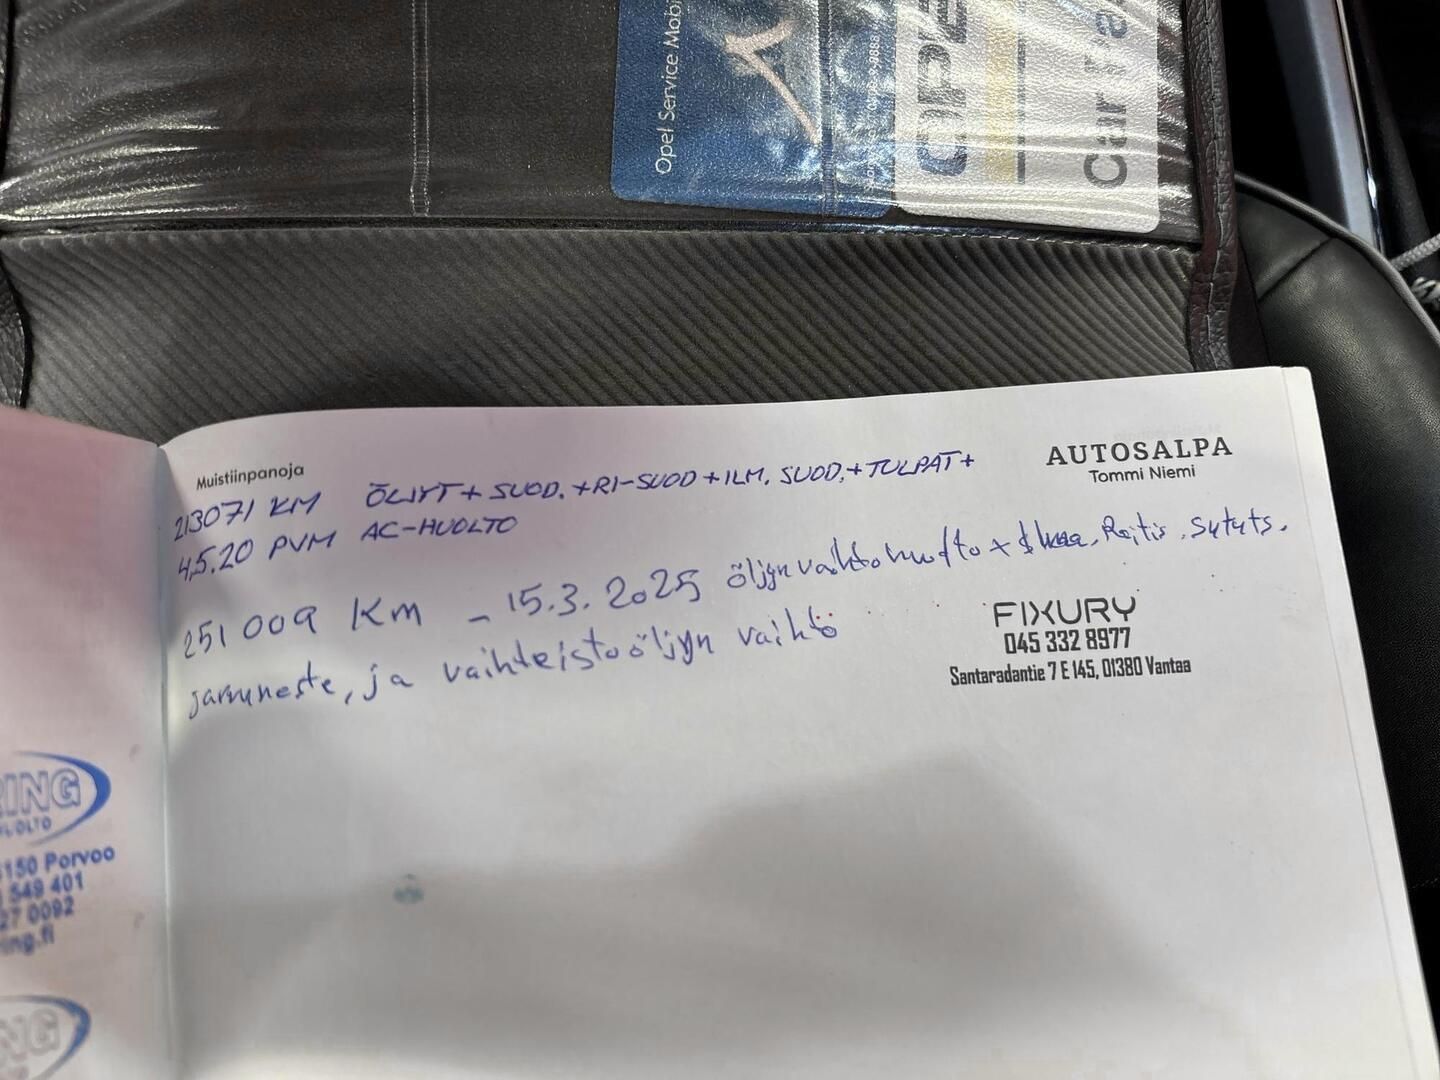 Opel Service Mobi
OPE
Car Pa
Muistiinpanoja
AUTOSALPA
Tommi Niemi
213071 KM ÖLJYT + SUOD. + RI-SUOD + ILM. SUOD. + TULPAT +
4.5.20 PVM AC-HUOLTO
251 009 KM - 15.3.2025 öljynvaihtohuolto + Raitis. Sytyts.
jarruneste, ja vaihteistoöljyn vaihtö
FIXURY
045 332 8977
Santaradantie 7 E 145, 01380 Vantaa
RING
150 Porvoo
549 401
27 0092
ing.fi
NG